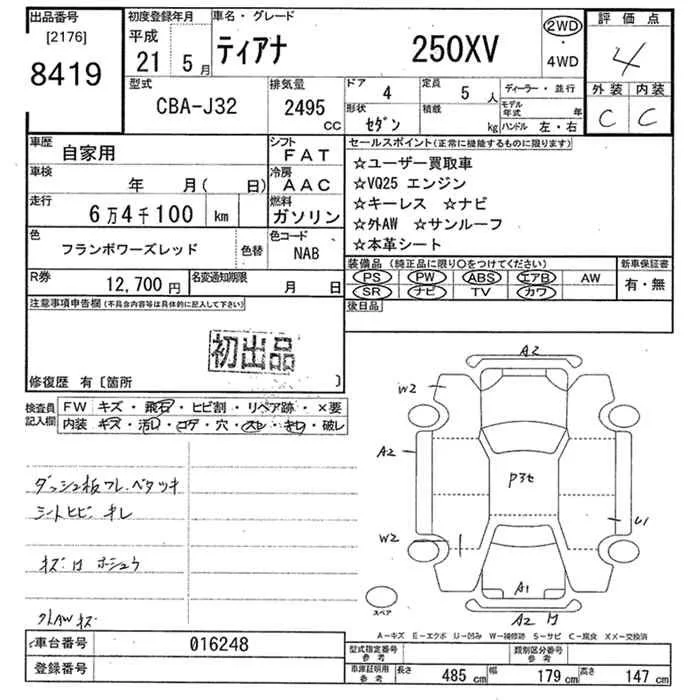 出品番号
[2176]
8419
初度登録年月
平成
21 5月
車名・グレード
ティアナ 250XV
2WD
・
4WD
評価点
4
外装 内装
C C
型式
CBA-J32
排気量
2495
CC
ドア
4
定員
5 人
形状
セダン
積載
kg
ディーラー・並行
モデル年式 年
ハンドル 左・右
車歴
自家用
シフト
FAT
車検
年 月( 日)
冷房
AAC
走行
6万4千100 km
燃料
ガソリン
色
フランボワーズレッド
色替
色コード
NAB
R券
12,700円
名変通知期限
月 日
セールスポイント(正常に機能するものに限ります)
☆ユーザー買取車
☆VQ25 エンジン
☆キーレス ☆ナビ
☆外AW ☆サンルーフ
☆本革シート
装備品(純正品に限り○をつけてください)
PS PW ABS エアB AW
SR ナビ TV カワ
新車保証書
有・無
後日品
注意事項申告欄(不具合内容等は具体的に記入して下さい)
初出品
修復歴 有〔箇所 〕
検査員記入欄
FW キズ・飛石・ヒビ割・リペア跡・×要
内装 キズ・汚レ・コゲ・穴・スレ・キレ・破レ
ダッシュ板フレ.ベタツキ
シートヒビ キレ
外AW キズ
A2
W2
A2
P3セ
U1
W2
A1
A2
スペア
A-キズ E-エクボ U-凹み W-補修跡 S-サビ C-腐食 XX-交換済
車台番号 016248
登録番号
型式指定番号
参考
類別区分番号
参考
車庫証明用
参考
長さ 485cm 幅 179cm 高さ 147cm